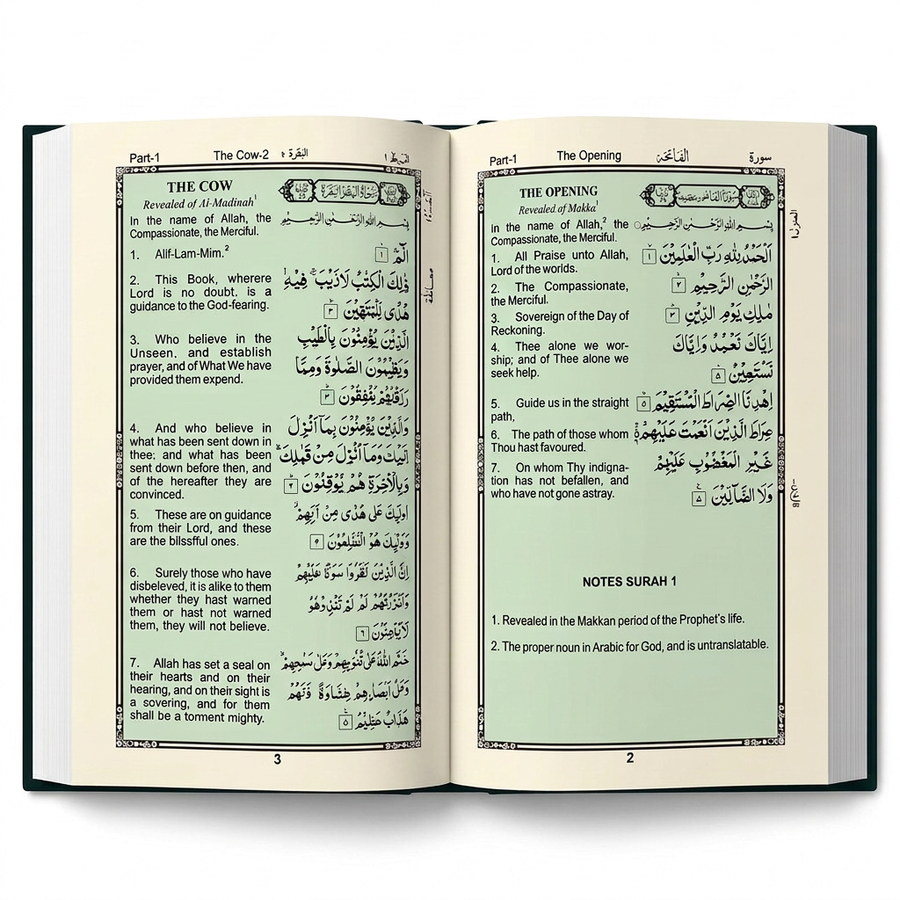 Part-1
The Opening
الفاتحة
سورة
THE OPENING
Revealed of Makka¹
in the name of Allah,² the
Compassionate, the Merciful.
1. All Praise unto Allah,
Lord of the worlds.
2. The Compassionate,
the Merciful.
3. Sovereign of the Day of
Reckoning.
4. Thee alone we wor-
ship; and of Thee alone we
seek help.
5. Guide us in the straight
path,
6. The path of those whom
Thou hast favoured.
7. On whom Thy indigna-
tion has not befallen, and
who have not gone astray.
بِسْمِ اللهِ الرَّحْمٰنِ الرَّحِيْمِ
اَلْحَمْدُ لِلّٰهِ رَبِّ الْعٰلَمِيْنَ ١
الرَّحْمٰنِ الرَّحِيْمِ ٢
مٰلِكِ يَوْمِ الدِّيْنِ ٣
اِيَّاكَ نَعْبُدُ وَاِيَّاكَ
نَسْتَعِيْنُ ۵
اِهْدِنَا الصِّرَاطَ الْمُسْتَقِيْمَ ۵
صِرَاطَ الَّذِيْنَ اَنْعَمْتَ عَلَيْهِمْ
غَيْرِ الْمَغْضُوْبِ عَلَيْهِمْ
وَلَا الضَّآلِّيْنَ ۵
NOTES SURAH 1
1. Revealed in the Makkan period of the Prophet's life.
2. The proper noun in Arabic for God, and is untranslatable.
2
Part-1
The Cow-2
البقرة ٢
THE COW
Revealed of Ai-Madinah¹
In the name of Allah, the
Compassionate, the Merciful.
1. Alif-Lam-Mim.²
2. This Book, wherere
Lord is no doubt. is a
guidance to the God-fearing.
3. Who believe in the
Unseen. and establish
prayer, and of What We have
provided them expend.
4. And who believe in
what has been sent down in
thee; and what has been
sent down before then, and
of the hereafter they are
convinced.
5. These are on guidance
from their Lord, and these
are the blissful ones.
6. Surely those who have
disbeleved, it is alike to them
whether they hast warned
them or hast not warned
them, they will not believe.
7. Allah has set a seal on
their hearts and on their
hearing, and on their sight is
a sovering, and for them
shall be a torment mighty.
بِسْمِ اللهِ الرَّحْمٰنِ الرَّحِيْمِ
الٓمّٓ ١
الْكِتٰبُ لَارَيْبَ فِيْهِ
هُدًى لِّلْمُتَّقِيْنَ ٣
الَّذِيْنَ يُؤْمِنُوْنَ
الصَّلٰوةَ وَمِمَّا
٣
وَالَّذِيْنَ يُؤْمِنُوْنَ بِمَآ اُنْزِلَ
اِلَيْكَ وَمَآ اُنْزِلَ مِنْ
وَبِالْاٰخِرَةِ هُمْ يُوْقِنُوْنَ ٢
عَلٰى هُدًى مِّنْ
اِنَّ الَّذِيْنَ
٦
۵
3